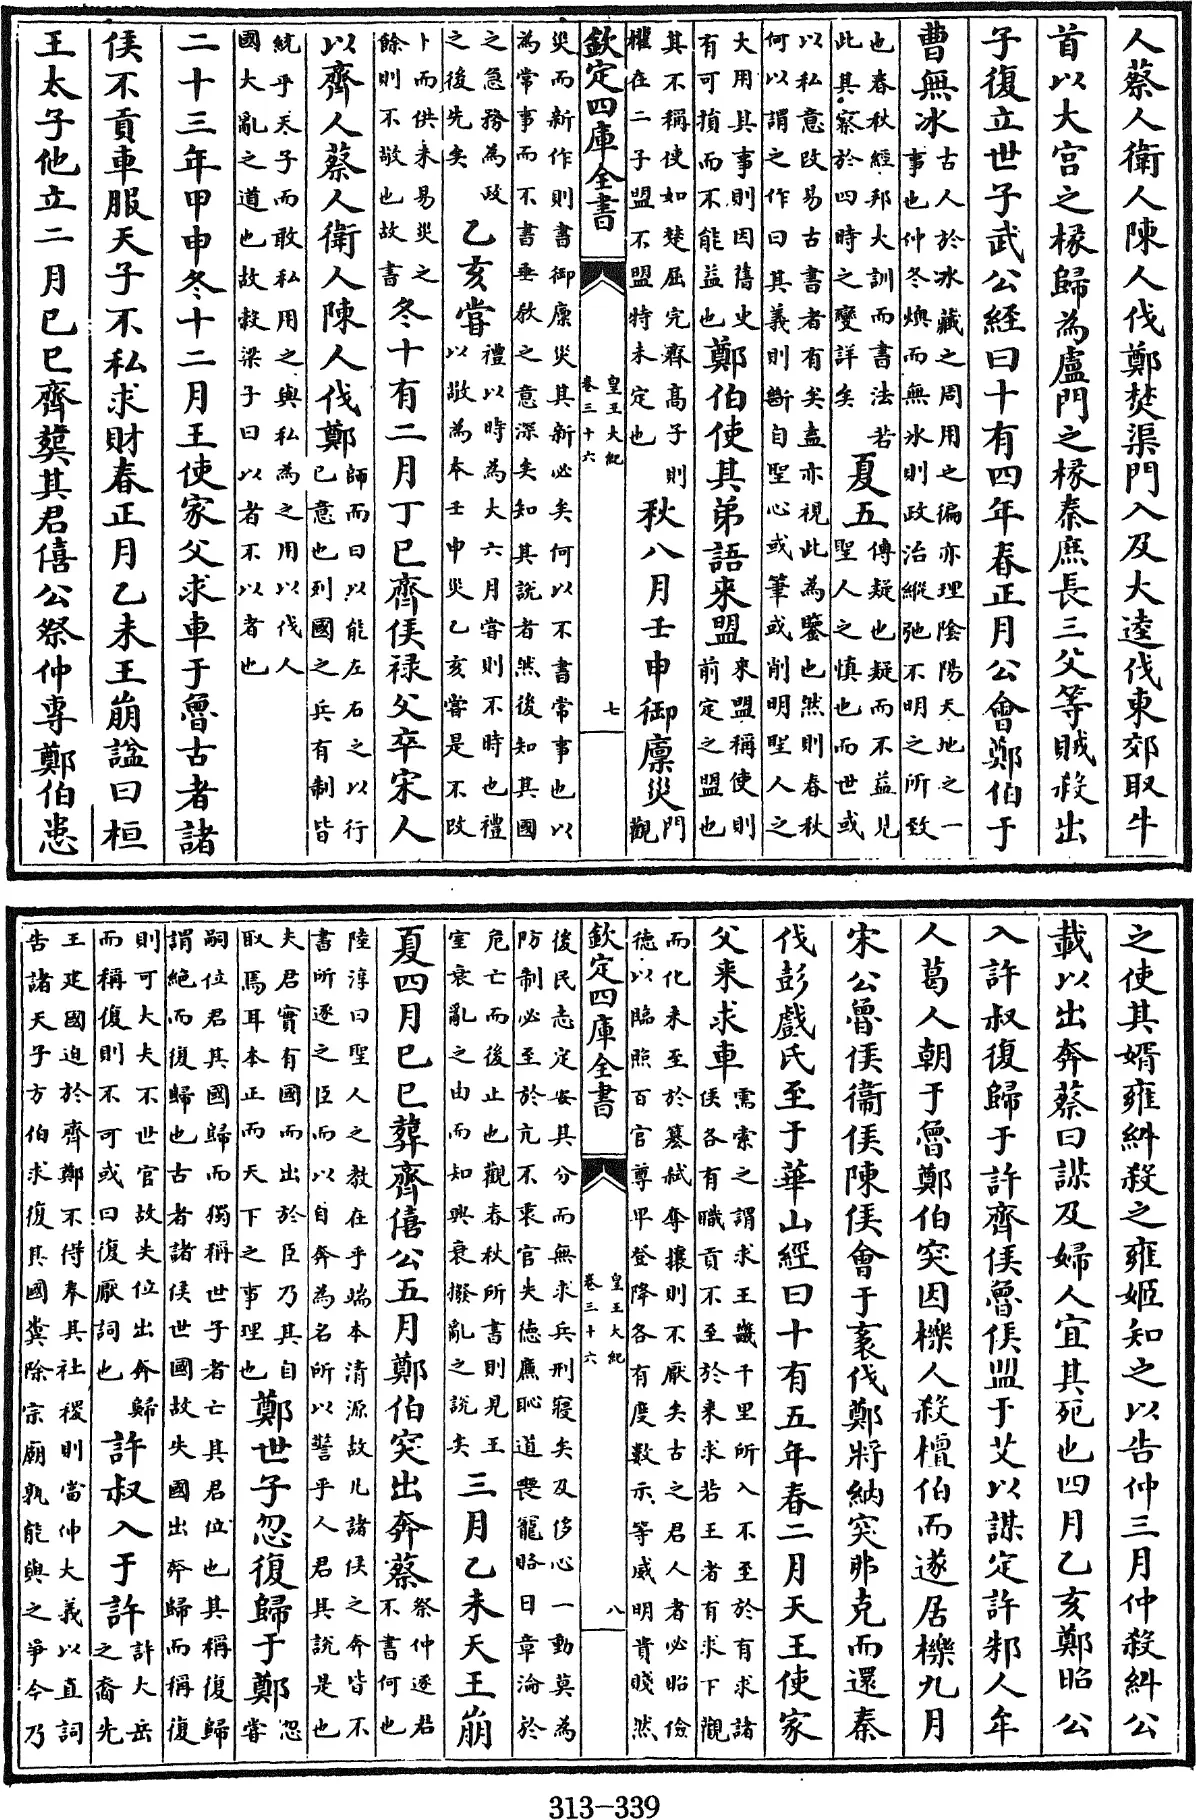 人蔡人衛人陳人伐鄭焚渠門入及大逵伐東郊取牛
首以大宫之椽歸為盧門之椽秦庶長三父等賊殺出
子復立世子武公經曰十有四年春正月公會鄭伯于
曹無冰古人於冰藏之周用之徧亦理隂陽天地之一
事也仲冬燠而無氷則政治縱弛不明之所致
也春秋經邦大訓而書法若
此其察於四時之變詳矣
夏五傳疑也疑而不益見
聖人之慎也而世或
以私意改易古書者有矣盍亦視此為鑒也然則春秋
何以謂之作曰其義則斷自聖心或筆或削明聖人之
大用其事則因舊史
有可損而不能益也
鄭伯使其弟語來盟來盟稱使則
前定之盟也
其不稱使如楚屈完齊高子則
權在二子盟不盟特未定也
秋八月壬申御廪災門
觀
欽定四庫全書
皇王大紀
卷三十六
七
災而新作則書御廪災其新必矣何以不書常事也以
為常事而不書垂教之意深矣知其説者然後知其國
之急務為政
之後先矣
乙亥嘗禮以時為大六月嘗則不時也禮
以敬為本壬申災乙亥嘗是不改
卜而供未易災之
餘則不敬也故書
冬十有二月丁巳齊侯禄父卒宋人
以齊人蔡人衛人陳人伐鄭師而曰以能左右之以行
已意也列國之兵有制皆
統乎天子而敢私用之與私為之用以伐人
國大亂之道也故穀梁子曰以者不以者也
二十三年甲申冬十二月王使家父求車于魯古者諸
侯不貢車服天子不私求財春正月乙未王崩諡曰桓
王太子他立二月己巳齊葬其君僖公祭仲專鄭伯患
之使其婿雍糾殺之雍姬知之以告仲三月仲殺糾公
載以出奔蔡曰謀及婦人宜其死也四月乙亥鄭昭公
入許叔復歸于許齊侯魯侯盟于艾以謀定許邾人牟
人葛人朝于魯鄭伯突因櫟人殺檀伯而遂居櫟九月
宋公魯侯衞侯陳侯會于袲伐鄭將納突弗克而還秦
伐彭戲氏至于華山經曰十有五年春二月天王使家
父來求車需索之謂求王畿千里所入不至於有求諸
侯各有職貢不至於來求若王者有求下觀
而化未至於簒弑奪攘則不厭矣古之君人者必昭儉
德以臨照百官尊卑登降各有度數示等威明貴賤然
欽定四庫全書
皇王大紀
卷三十六
八
後民志定安其分而無求兵刑寢矣及侈心一動莫為
防制必至於亢不衷官失德㢘恥道喪寵賂日章淪於
危亡而後止也觀春秋所書則見王
室衰亂之由而知興衰撥亂之説矣
三月乙未天王崩
夏四月己巳葬齊僖公五月鄭伯突出奔蔡祭仲逐君
不書何也
陸淳曰聖人之教在乎端本清源故凡諸侯之奔皆不
書所逐之臣而以自奔為名所以警乎人君其説是也
夫君實有國而出於臣乃其自
取焉耳本正而天下之事理也
鄭世子忽復歸于鄭忽
嘗
嗣位君其國歸而獨稱世子者亡其君位也其稱復歸
謂絶而復歸也古者諸侯世國故失國出奔歸而稱復
則可大夫不世官故失位出奔歸
而稱復則不可或曰復厭詞也
許叔入于許許大岳
之裔先
王建國迫於齊鄭不得奉其社稷則當仲大義以直詞
告諸天子方伯求復其國糞除宗廟孰能與之爭今乃
313-339